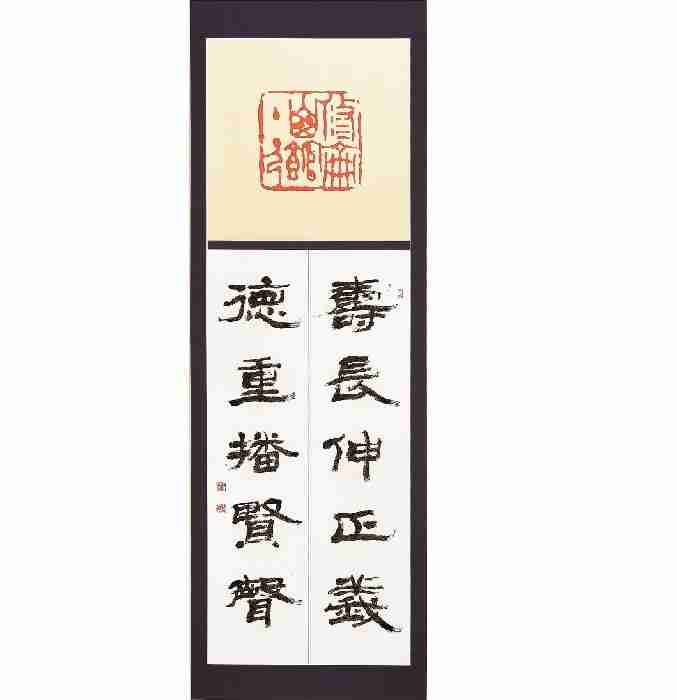 壽長伸正義
德重播賢聲